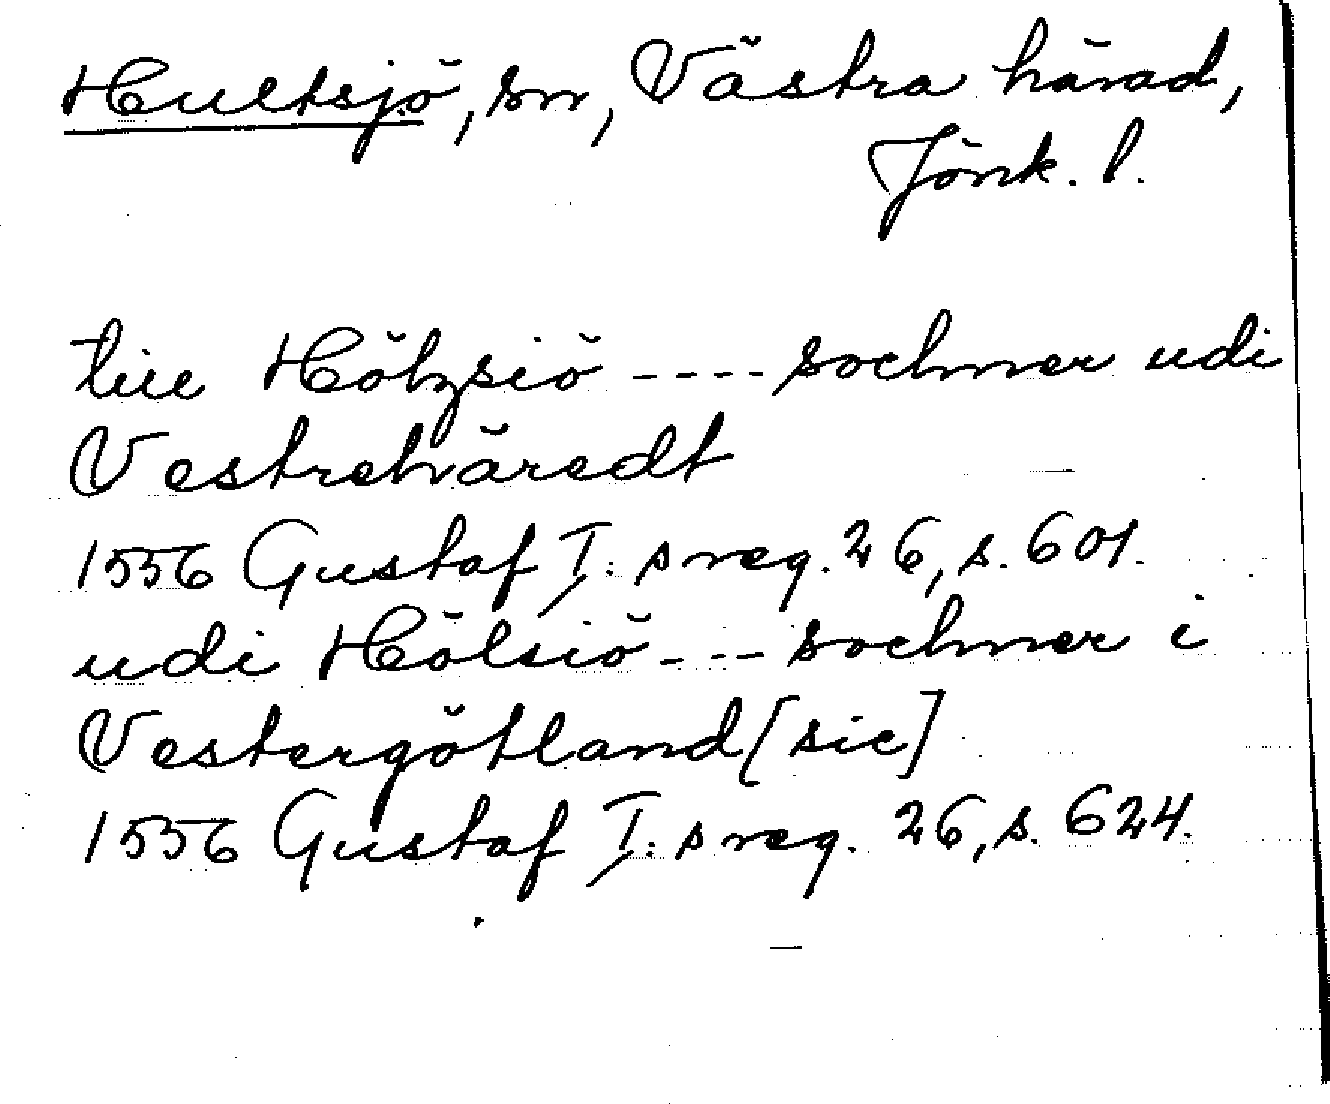 Hultsjö, sn, Västra härad,
Jönk. l.
till Höltzsiö ---- sochner udi
Vestrehäredt
1556 Gustaf I:s reg. 26, s. 601.
udi Hölsiö --- sochner i
Vestergötland [sic]
1556 Gustaf I:s reg. 26, s. 624.